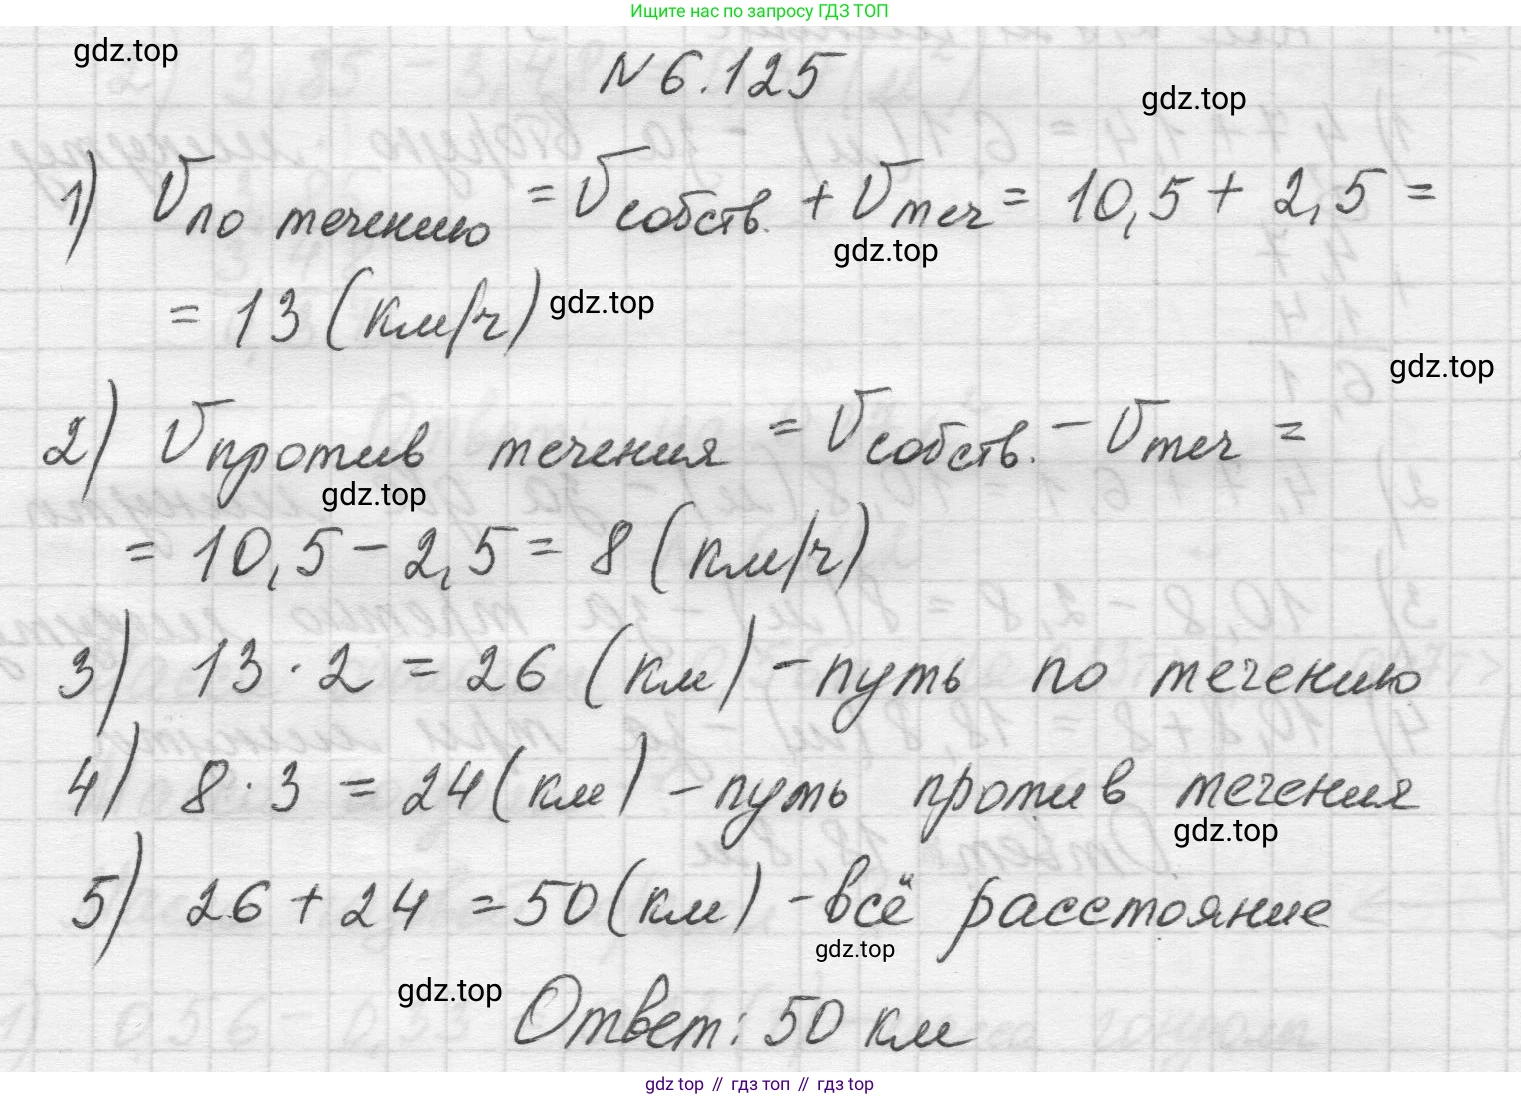 Ищите нас по запросу ГДЗ ТОП
gdz.top
N 6.125
gdz.top
1) V по течению = V собств. + V теч = 10,5 + 2,5 =
gdz.top
= 13 (км/ч)
gdz.top
gdz.top
2) V против течения = V собств. - V теч =
gdz.top
= 10,5 - 2,5 = 8 (км/ч)
3) 13 · 2 = 26 (км) - путь по течению
4) 8 · 3 = 24 (км) - путь против течения
gdz.top
5) 26 + 24 = 50 (км) - всё расстояние
gdz.top
gdz.top
Ответ: 50 км
gdz top // гдз топ // гдз top